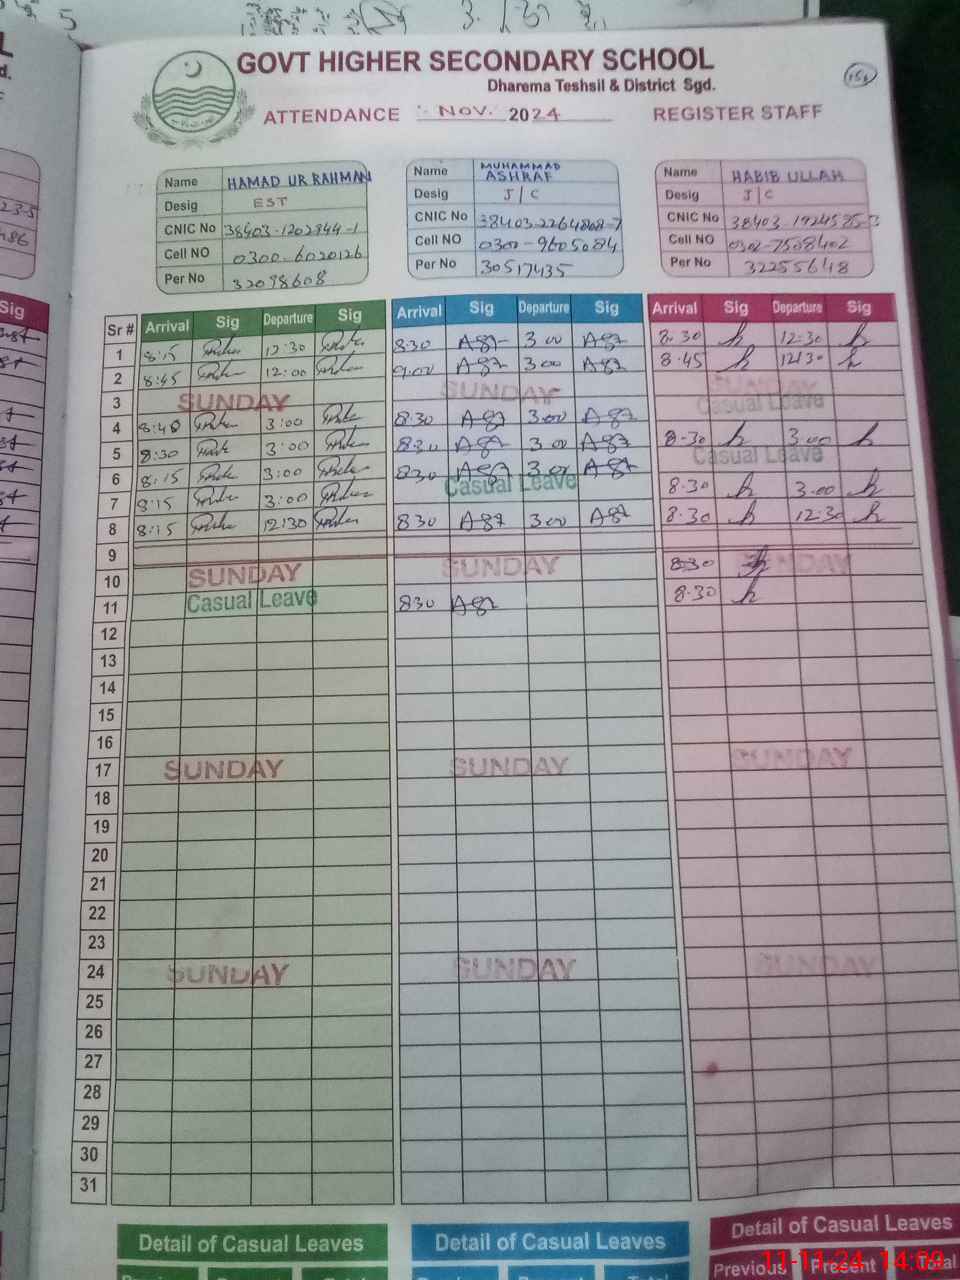 GOVT HIGHER SECONDARY SCHOOL
Dharema Teshsil & District Sgd.
ATTENDANCE Nov. 2024 REGISTER STAFF
Name HAMAD UR RAHMAN
Desig EST
CNIC No 38403-1202944-1
Cell NO 0300-6020126
Per No 32098608
Name MUHAMMAD ASHRAF
Desig J/C
CNIC No 38403-2264808-7
Cell NO 0300-9605084
Per No 30517435
Name HABIB ULLAH
Desig J/C
CNIC No 38403-1924595-
Cell NO 0302-7508402
Per No 32255648
Sr # Arrival Sig Departure Sig Arrival Sig Departure Sig Arrival Sig Departure Sig
1 8:15 12:30 830 300 8.30 12:30
2 8:45 12:00 9.00 300 8.45 12:30
3 SUNDAY SUNDAY SUNDAY
4 8:40 3:00 8.30 3.00 Casual Leave
5 8:30 3:00 8.30 3.00 8.30 3.00
6 8:15 3:00 830 3.00 Casual Leave
7 8:15 3:00 Casual Leave 8.30 3.00
8 8:15 12:30 830 300 8.30 12:30
9
10 SUNDAY SUNDAY 8.30 SUNDAY
11 Casual Leave 830 8.30
12
13
14
15
16
17 SUNDAY SUNDAY SUNDAY
18
19
20
21
22
23
24 SUNDAY SUNDAY SUNDAY
25
26
27
28
29
30
31
Detail of Casual Leaves Detail of Casual Leaves Detail of Casual Leaves
Previous Present Total
11-11-24 14:09